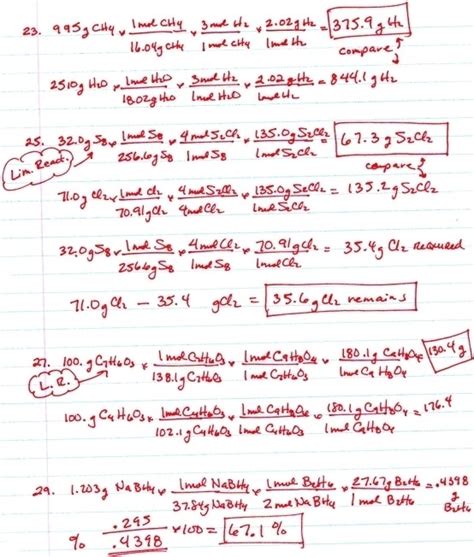 23. 995g CH4 × 1mol CH4/16.04g CH4 × 3mol H2/1mol CH4 × 2.02g H2/1mol H2 = 375.9g H2
compare
2510g H2O × 1mol H2O/18.02g H2O × 3mol H2/1mol H2O × 2.02g H2/1mol H2 = 844.1g H2
25. 32.0g S8 × 1mol S8/256.6g S8 × 4mol S2Cl2/1mol S8 × 135.0g S2Cl2/1mol S2Cl2 = 67.3g S2Cl2
Lim. React.
compare
71.0g Cl2 × 1mol Cl2/70.91g Cl2 × 4mol S2Cl2/4mol Cl2 × 135.0g S2Cl2/1mol S2Cl2 = 135.2g S2Cl2
32.0g S8 × 1mol S8/256.6g S8 × 4mol Cl2/1mol S8 × 70.91g Cl2/1mol Cl2 = 35.4g Cl2 required
71.0g Cl2 − 35.4 gCl2 = 35.6g Cl2 remains
27. 100.g C7H6O3 × 1mol C7H6O3/138.1g C7H6O3 × 1mol C9H8O4/1mol C7H6O3 × 180.1g C9H8O4/1mol C9H8O4 = 130.4g
L.R.
100.g C4H6O3 × 1mol C4H6O3/102.1g C4H6O3 × 1mol C9H8O4/1mol C4H6O3 × 180.1g C9H8O4/1mol C9H8O4 = 176.4
29. 1.203g NaBH4 × 1mol NaBH4/37.84g NaBH4 × 1mol B2H6/2mol NaBH4 × 27.67g B2H6/1mol B2H6 = .4398 g B2H6
% .295/.4398 × 100 = 67.1%